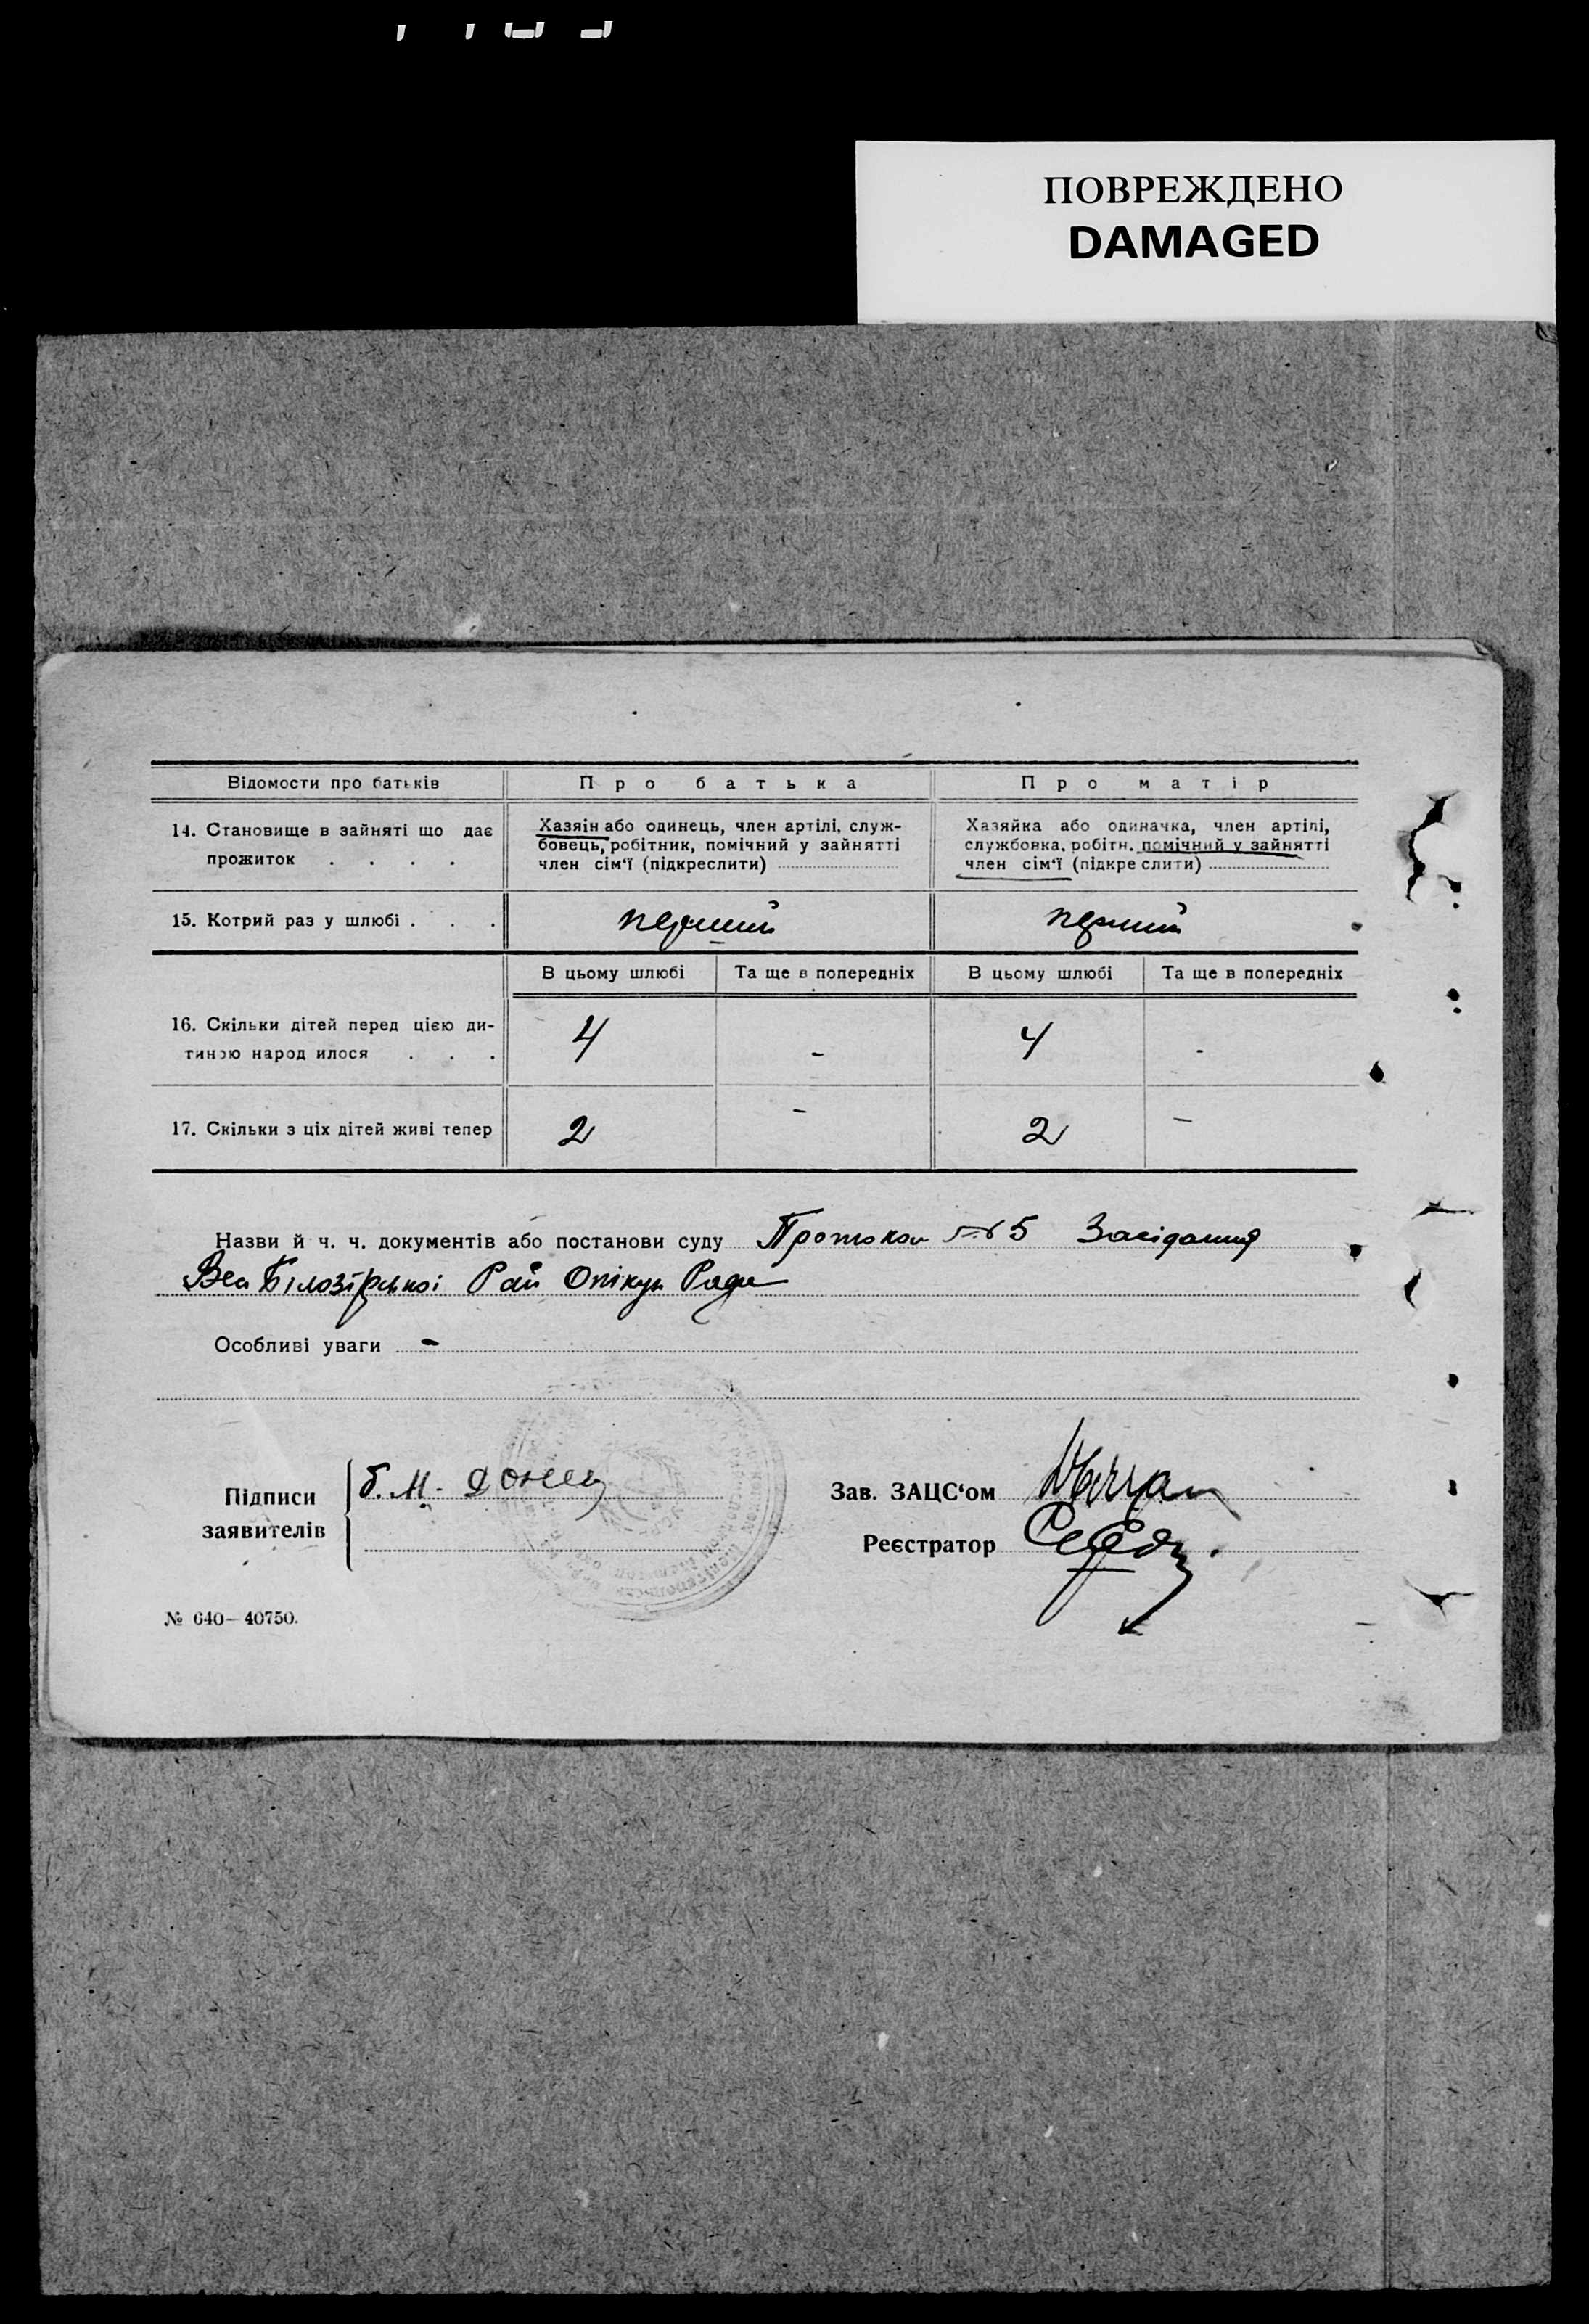 ПОВРЕЖДЕНО
DAMAGED
Відомости про батьків
Про батька
Про матір
14. Становище в зайняті що дає
прожиток . . . .
Хазяін або одинець, член артілі, служ-
бовець, робітник, помічний у зайнятті
член сім‘ї (підкреслити)
Хазяйка або одиначка, член артілі,
службовка, робітн. помічний у зайнятті
член сім‘ї (підкре слити)
15. Котрий раз у шлюбі . . .
перший
перший
В цьому шлюбі
Та ще в попередніх
В цьому шлюбі
Та ще в попередніх
16. Скільки дітей перед цією ди-
тиною народ илося . . .
4
-
4
-
17. Скільки з ціх дітей живі тепер
2
-
2
-
Назви й ч. ч. документів або постанови суду Протокол №5 Засідання
Білозірської Рай Опікун Ради
Особливі уваги -
Підписи
заявителів
Зав. ЗАЦС‘ом
Реєстратор
№ 640—40750.